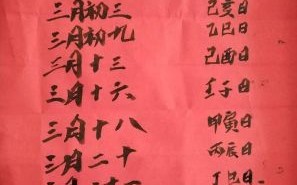 三月初三 己亥日
三月初九 乙巳日
三月十三 己酉日
三月十六 壬子日
三月十八 甲寅日
三月二十 丙辰日
丁巳日